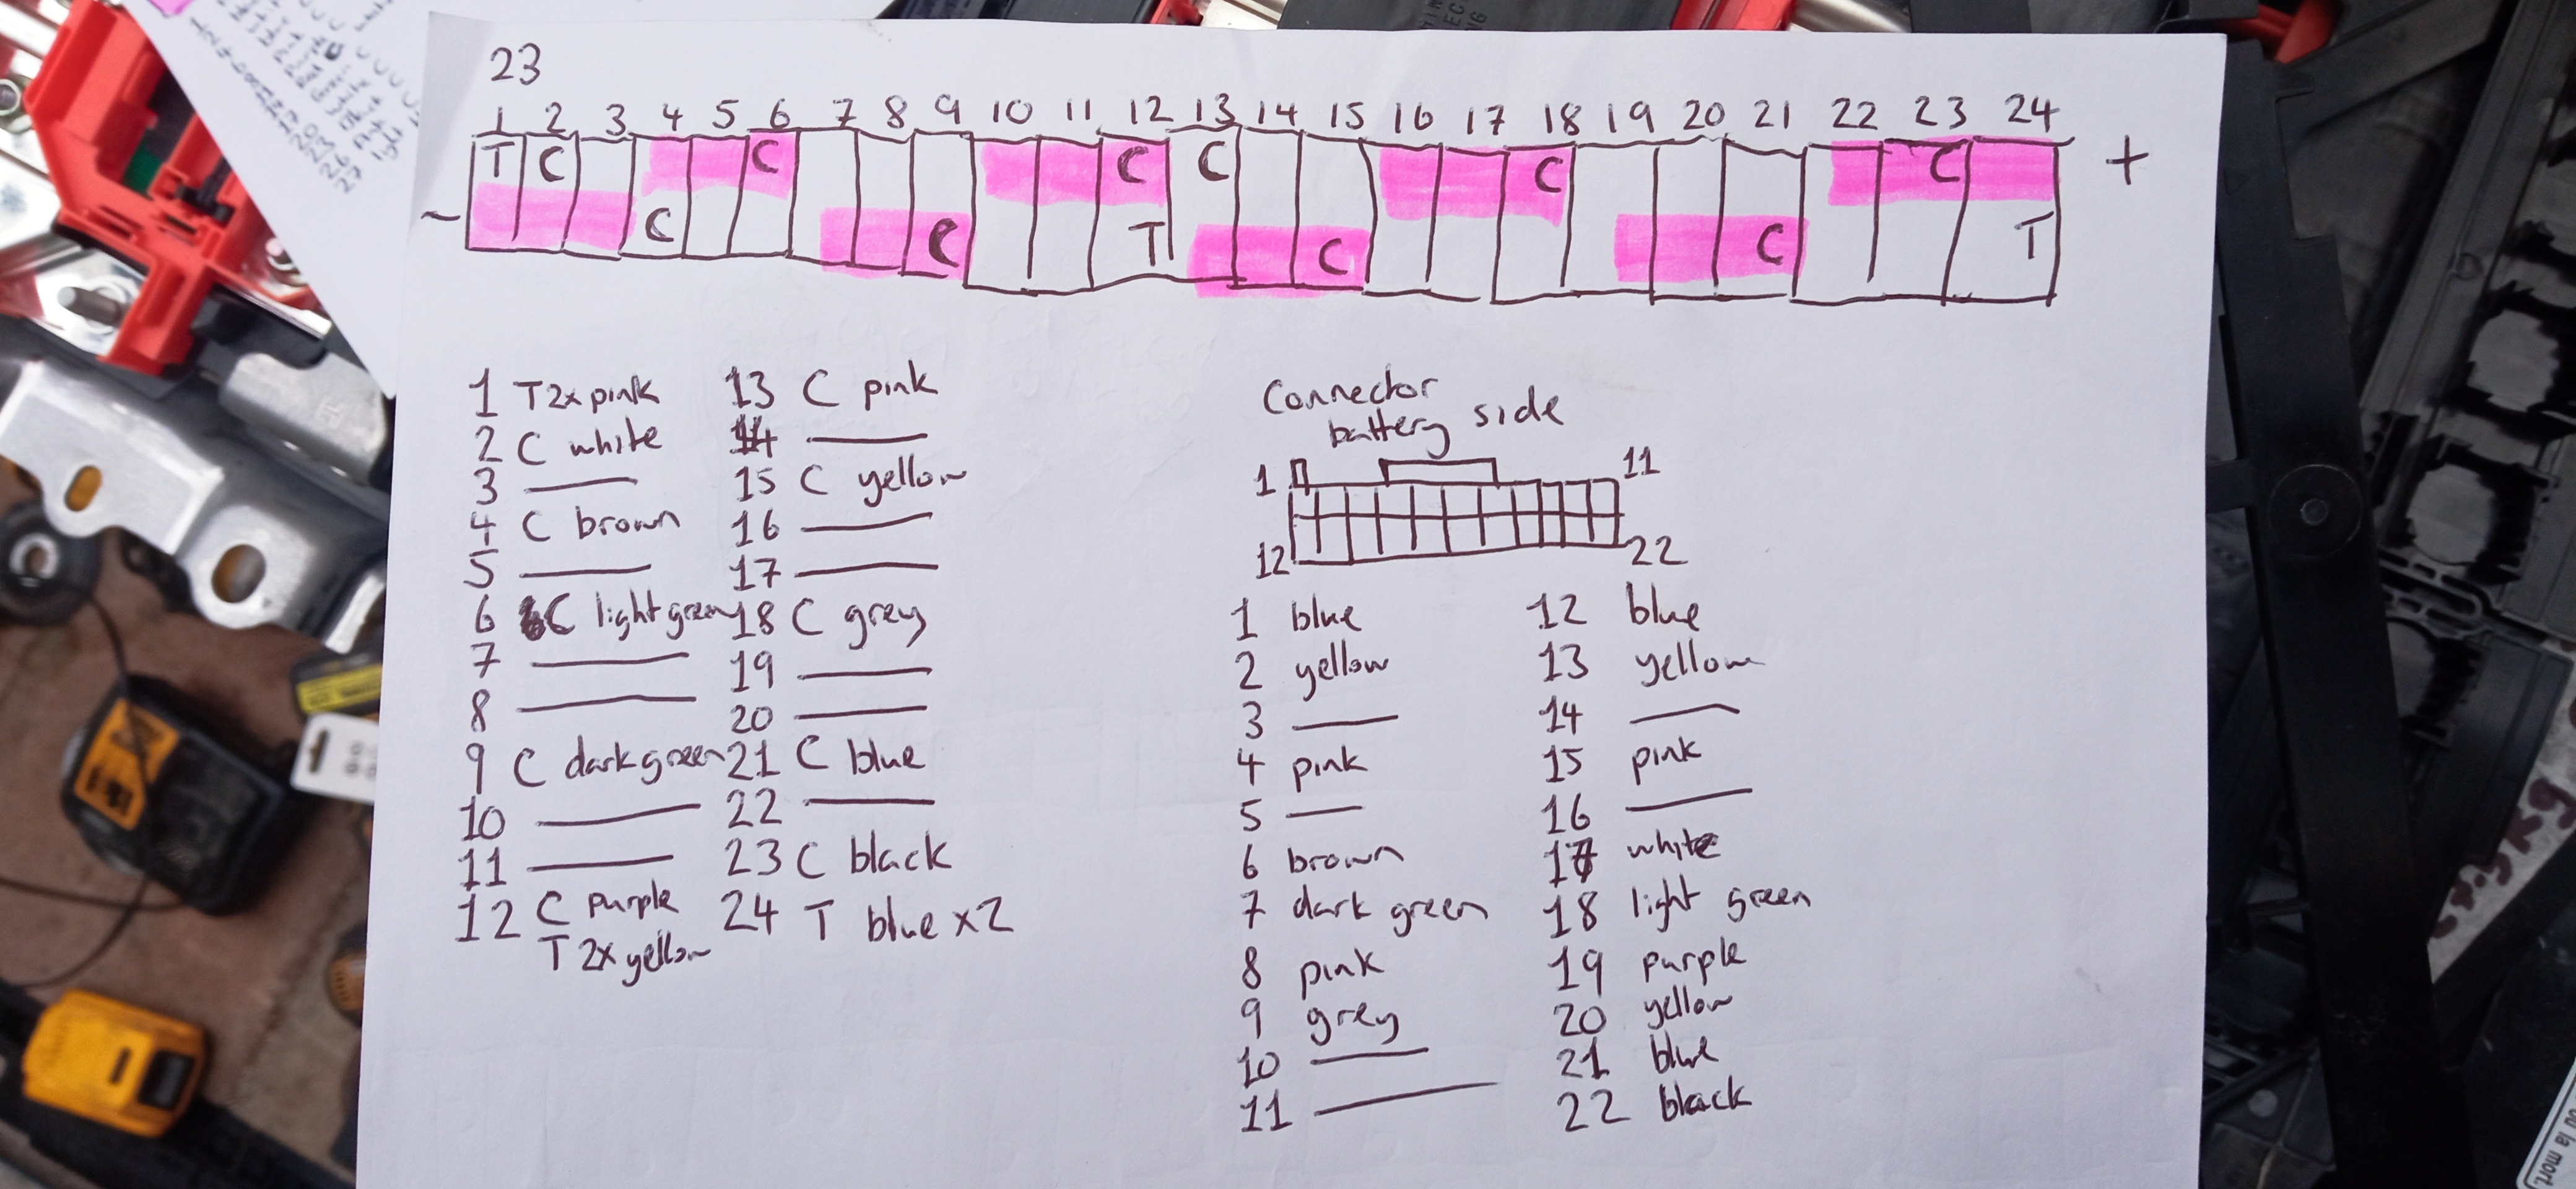 23
1 2 3 4 5 6 7 8 9 10 11 12 13 14 15 16 17 18 19 20 21 22 23 24
T C C C C C C +
- C C T C C T
1 T 2x pink
2 C white
3 ———
4 C brown
5 ———
6 C light green
7 ———
8 ———
9 C dark green
10 ———
11 ———
12 C purple
T 2x yellow
13 C pink
14 ———
15 C yellow
16 ———
17 ———
18 C grey
19 ———
20 ———
21 C blue
22 ———
23 C black
24 T blue x2
Connector
battery side
1 11
12 22
1 blue
2 yellow
3 ———
4 pink
5 ———
6 brown
7 dark green
8 pink
9 grey
10 ———
11 ———
12 blue
13 yellow
14 ———
15 pink
16 ———
17 white
18 light green
19 purple
20 yellow
21 blue
22 black